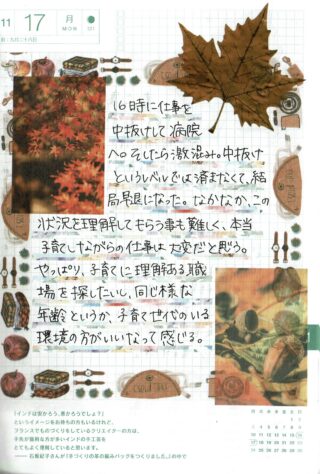 11 17 月
MON
旧:九月二十八日
16時に仕事を
中抜けして病院
へ。そしたら激混み。中抜け
というレベルでは済まなくて、結
局早退になった。なかなか、この
状況を理解してもらう事も難しく、本当
子育てしながらの仕事は大変だと思う。
やっぱり、子育てに理解ある職
場を探したいし、同じ様な
年齢というか、子育て世代のいる
環境の方がいいなって感じる。
「インドは安かろう、悪かろうでしょ?」
というイメージをお持ちの方もいるけれど、
フランスでものづくりをしているクリエイターの方は、
手先が器用な方が多いインドの手工芸を
とてもよく評価していると思います。